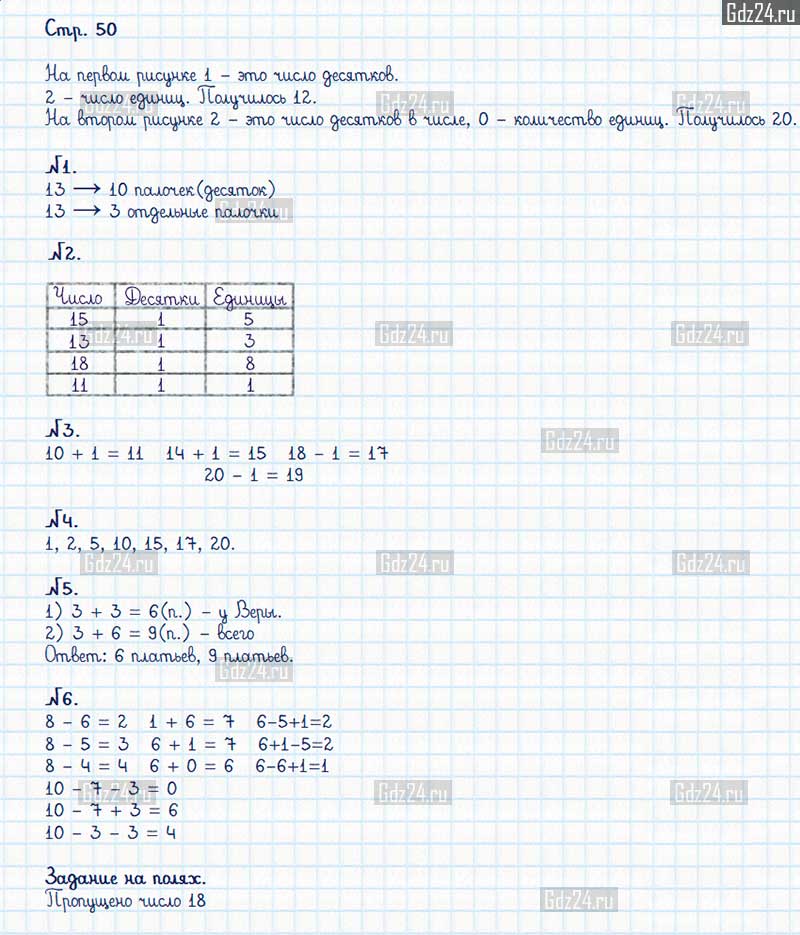 Gdz24.ru
Стр. 50
На первом рисунке 1 – это число десятков.
2 – число единиц. Получилось 12.
На втором рисунке 2 – это число десятков в числе, 0 – количество единиц. Получилось 20.
№1.
13 → 10 палочек(десяток)
13 → 3 отдельные палочки
№2.
Число Десятки Единицы
15 1 5
13 1 3
18 1 8
11 1 1
№3.
10 + 1 = 11 14 + 1 = 15 18 - 1 = 17
20 - 1 = 19
№4.
1, 2, 5, 10, 15, 17, 20.
№5.
1) 3 + 3 = 6(п.) – у Веры.
2) 3 + 6 = 9(п.) – всего
Ответ: 6 платьев, 9 платьев.
№6.
8 - 6 = 2 1 + 6 = 7 6-5+1=2
8 - 5 = 3 6 + 1 = 7 6+1-5=2
8 - 4 = 4 6 + 0 = 6 6-6+1=1
10 - 7 - 3 = 0
10 - 7 + 3 = 6
10 - 3 - 3 = 4
Задание на полях.
Пропущено число 18